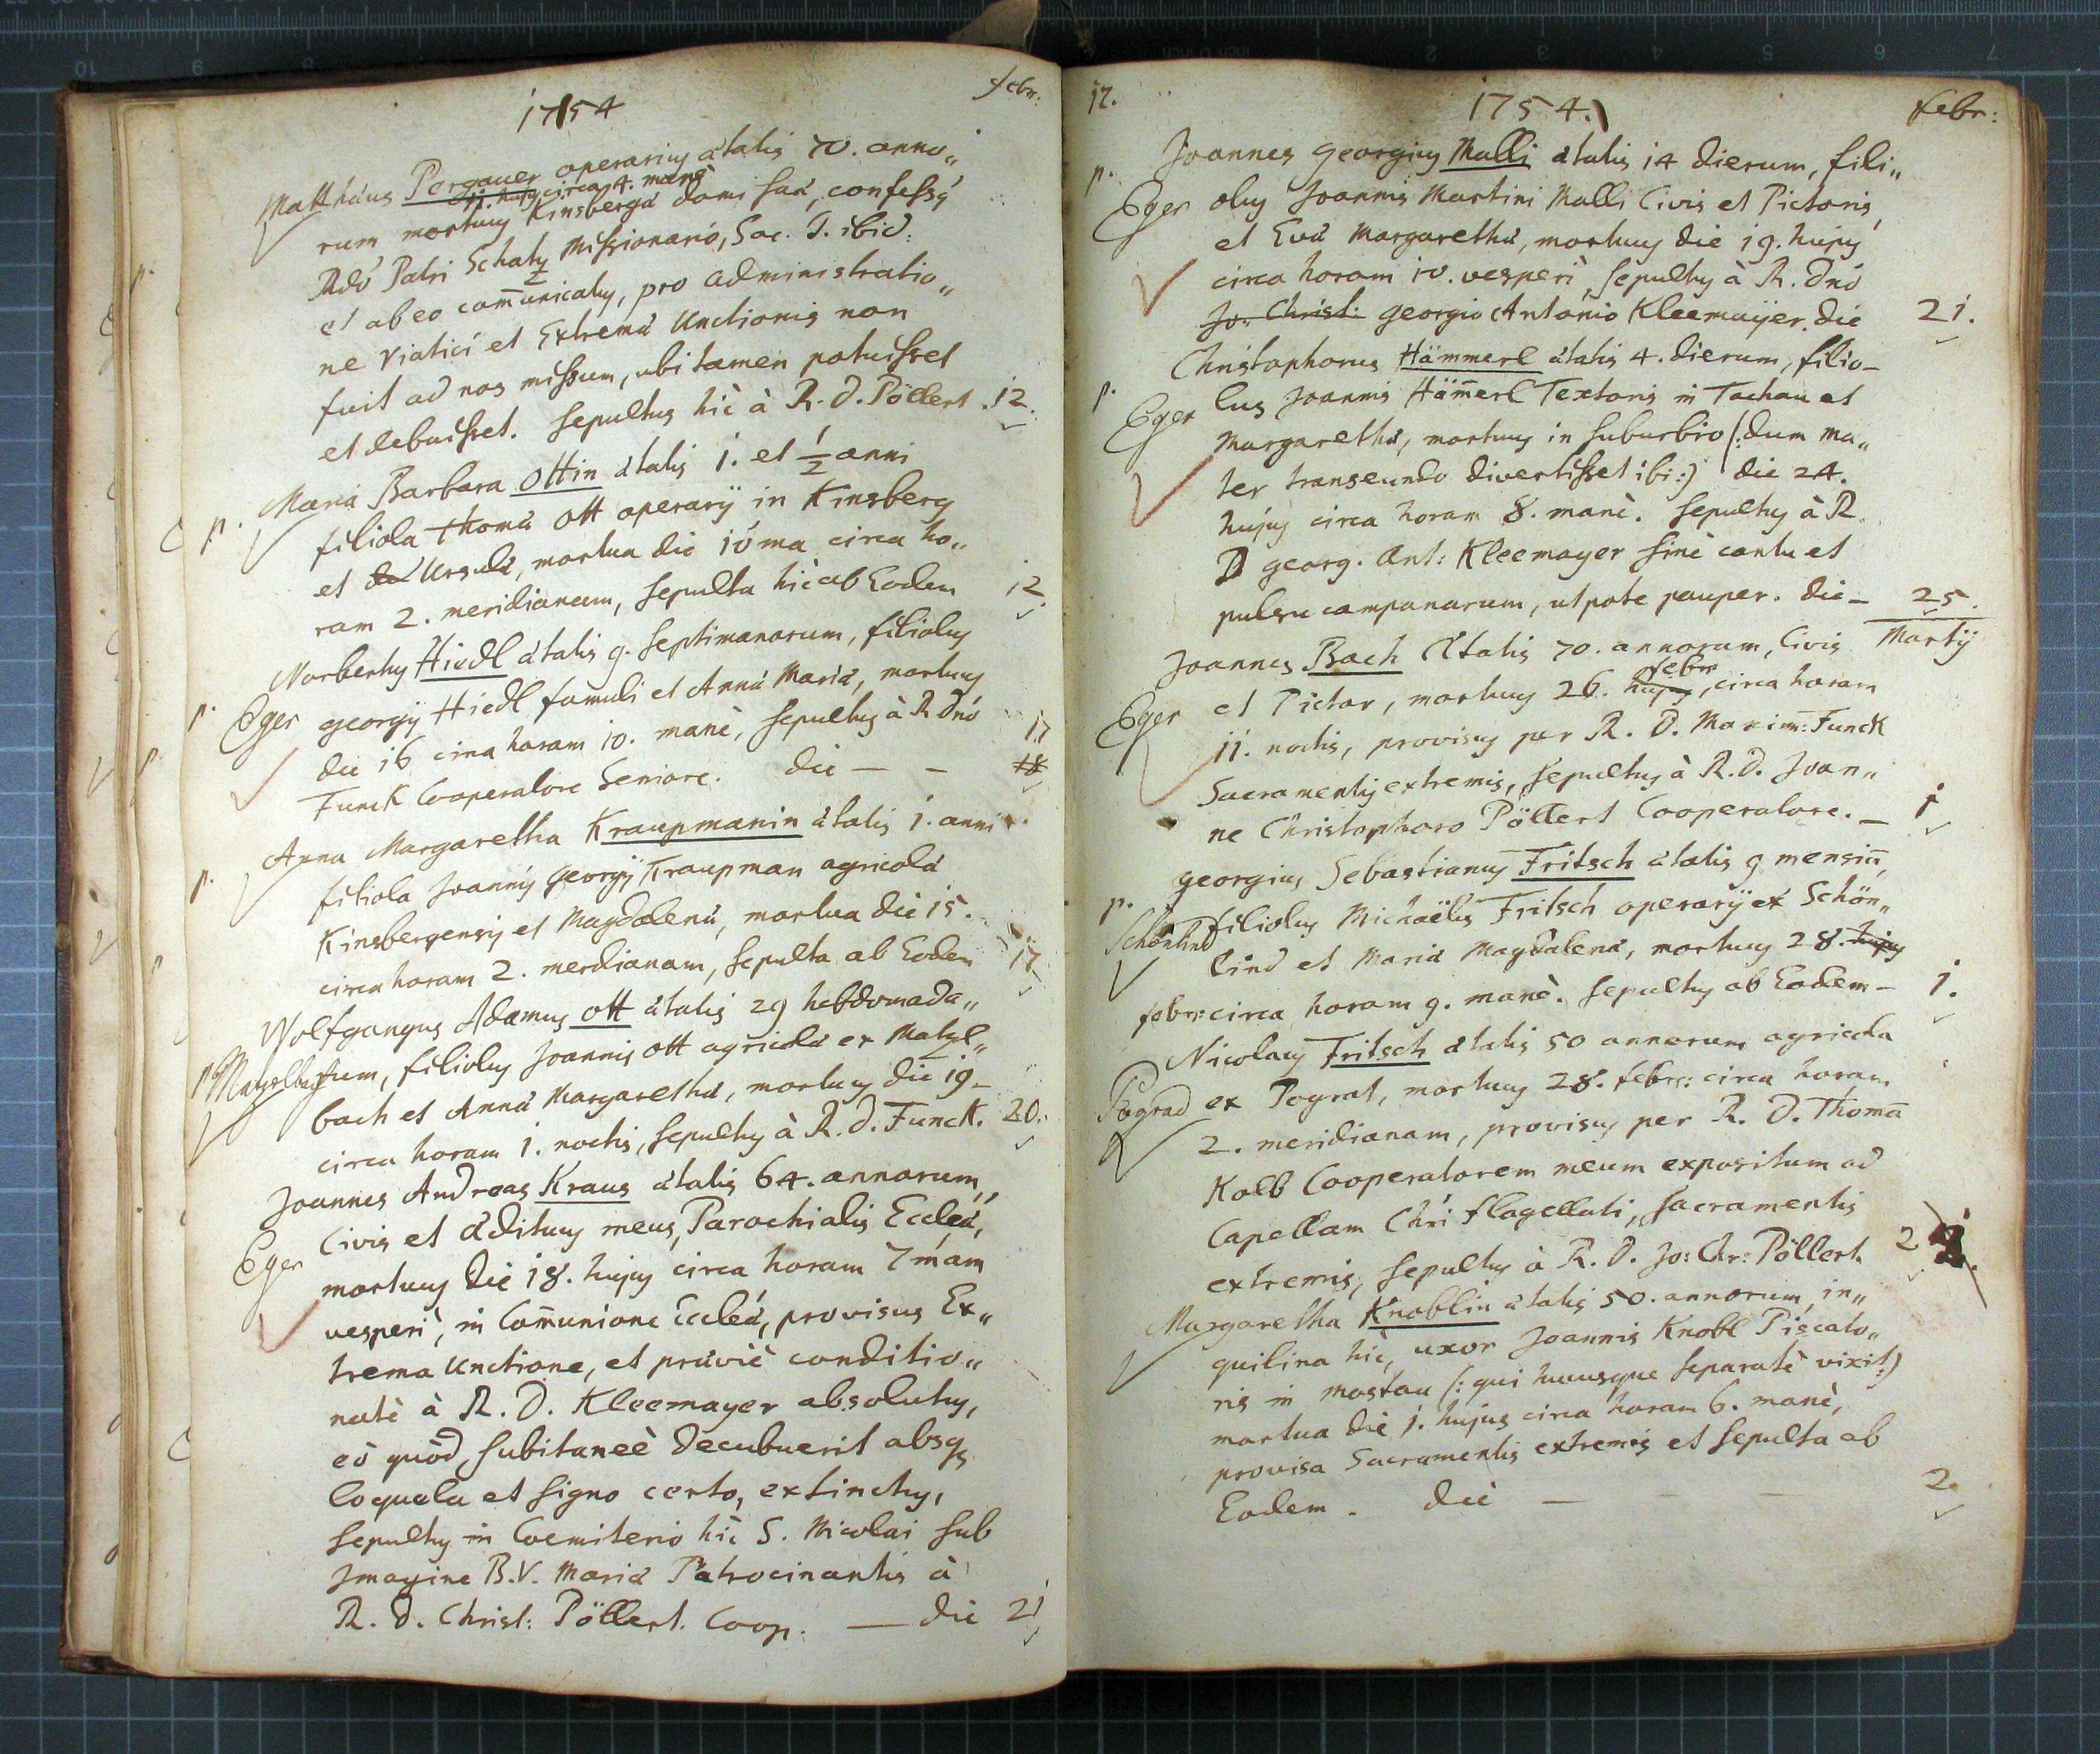 1754
febr:
Matthæus Pergauer operarius ætatis 70. anno„
11. hujus circa 4. manè
rum mortuus Kinsbergæ domi suæ, confessus
Rdo Patri Schatz Missionario, Soc. J. ibid:
et ab eo com̄unicatus, pro administratio„
ne Viatici et Extremæ Unctionis non
fuit ad nos missum, ubi tamen potuisset
et debuisset. Sepultus hìc à R. D. Pöllert. 12.
Maria Barbara Ottin ætatis 1. et 1/2 anni
p. filiola Thomæ Ott operarij in Kinsberg
et Ursulæ, mortua die 10ma circa ho„
ram 2. meridianam, sepulta hìc ab Eodem 12.
Norbertus Hiedl ætatis 9. septimanarum, filiolus
p. Eger georgij Hiedl famuli et Annæ Mariæ, mortuus
die 16 circa horam 10. manè, sepultus à R Dno 17
Funck Cooperatore Seniore. die — — 18
Anna Margaretha Kraupmanin ætatis 1. anni
p. filiola Joannis Georgij Kraupman agricolæ
Kinsbergensis et Magdalenæ, mortua die 15.
circa horam 2. merdianam, sepulta ab Eodem 17
Wolfgangus Adamus Ott ætatis 29 hebdomada„
p. Mazelbach rum, filiolus Joannis Ott agricolæ ex Matzl„
bach et Annæ Margarethæ, mortuus die 19_
circa horam 1. noctis, sepultus à R. D. Funck. 20.
Joannes Andreas Kraus ætatis 64. annorum,
Eger Civis et ædituus meus, Parochialis Eccleæ,
mortuus die 18. hujus circa horam 7mam
vesperi, in Com̄unione Eccleæ, provisus Ex„
trema Unctione, et præviè conditio„
natè à R. D. Kleemayer absolutus,
eò quòd, subitaneè decubuerit absq
loquela et signo certo, extinctus,
sepultus in Coemiterio hìc S. Nicolai sub
Jmagine B.V. Mariæ Patrocinantis à
R. D. Christ: Pöllert. Coop. — die 21
17.
1754.
febr:
Joannes Georgius Malli ætatis 14 dierum, fili„
p. Eger olus Joannis Martini Malli Civis et Pictoris,
et Evæ Margarethæ, mortuus die 19. hujus
circa horam 10. vesperi, sepultus à R. Dnó
Jo: Christ: georgio Antonio Kleemaijer. die 21.
Christophorus Hämmerl ætatis 4. dierum, filio_
p. Eger lus Joannis Häm̄erl Textoris in Tachau et
Margarethæ, mortuus in suburbio (: dum ma„
ter transeundo divertisset ibi :) die 24.
hujus circa horam 8. manè. sepultus à R.
D georg. Ant: Kleemayer sinè cantu et
pulsu campanarum, utpote pauper. die _ 25.
Martij
Joannes Bach ætatis 70. annorum, Civis
Eger et Pictor, mortuus 26. hujus febr, circa horam
11. noctis, provisus per R. D. Maxim: Funck
Sacramentis extremis, sepultus à R. D. Joan„
ne Christophoro Pöllert Cooperatore. _ 1
georgius Sebastianus Fritsch ætatis 9 mensiū,
p. Schönlind filiolus Michaëlis Fritsch operarij ex Schön„
lind et Mariæ Magdalenæ, mortuus 28. hujus
febr: circa horam 9. manè. sepultus ab Eodem _ 1.
Nicolaus Fritsch ætatis 50 annorum agricola
Pograd ex Pograt, mortuus 28. febr: circa horam
2. meridianam, provisus per R. D. Thomā
Kolb Cooperatorem meum expositum ad
Capellam Chri flagellati, sacramentis
extremis, sepultus à R. D. Jo: Chr: Pöllert. 2
Margaretha Knoblin ætatis 50. annorum, in„
quilina hìc, uxor Joannis Knobl Piscato„
ris in Mostau (: qui hucusque separatè vixit :)
mortua die 1. hujus circa horam 6. manè,
provisa Sacramentis extremis et sepulta ab
Eodem. die — — — 2.